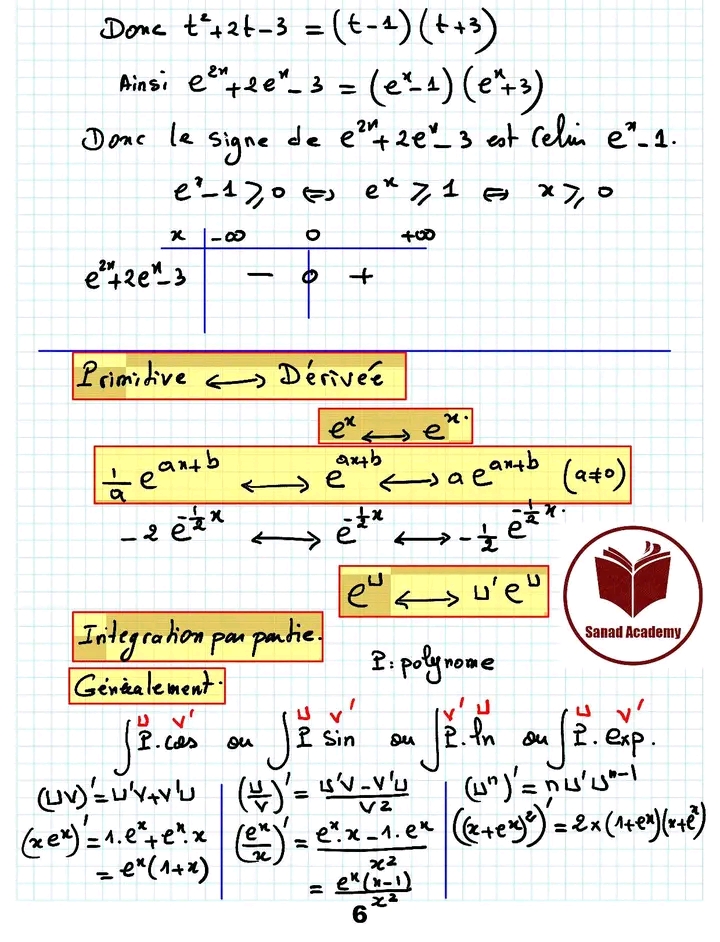 Donc t²+2t-3 = (t-1)(t+3)
Ainsi e²ˣ+2eˣ-3 = (eˣ-1)(eˣ+3)
Donc le signe de e²ˣ+2eˣ-3 est celui eˣ-1.
eˣ-1 ⩾ 0 ⇔ eˣ ⩾ 1 ⇔ x ⩾ 0
x -∞ 0 +∞
e²ˣ+2eˣ-3 - 0 +
Primitive ⟷ Dérivée
eˣ ⟷ eˣ.
1/a e^(ax+b) ⟷ e^(ax+b) ⟷ a e^(ax+b) (a≠0)
-2 e^(-1/2 x) ⟷ e^(-1/2 x) ⟷ -1/2 e^(-1/2 x).
e^u ⟷ u' e^u
Sanad Academy
Intégration par partie.
P: polynome
Généralement.
u v' u v' v' u u v'
∫P.cos ou ∫P sin ou ∫P.ln ou ∫P.exp.
(uv)' = u'v+v'u
(xeˣ)' = 1.eˣ+eˣ.x
= eˣ(1+x)
(u/v)' = (u'v-v'u)/v²
(eˣ/x)' = (eˣ.x-1.eˣ)/x²
= eˣ(x-1)/x²
(uⁿ)' = nu'uⁿ⁻¹
((x+eˣ)²)' = 2×(1+eˣ)(x+eˣ)
6